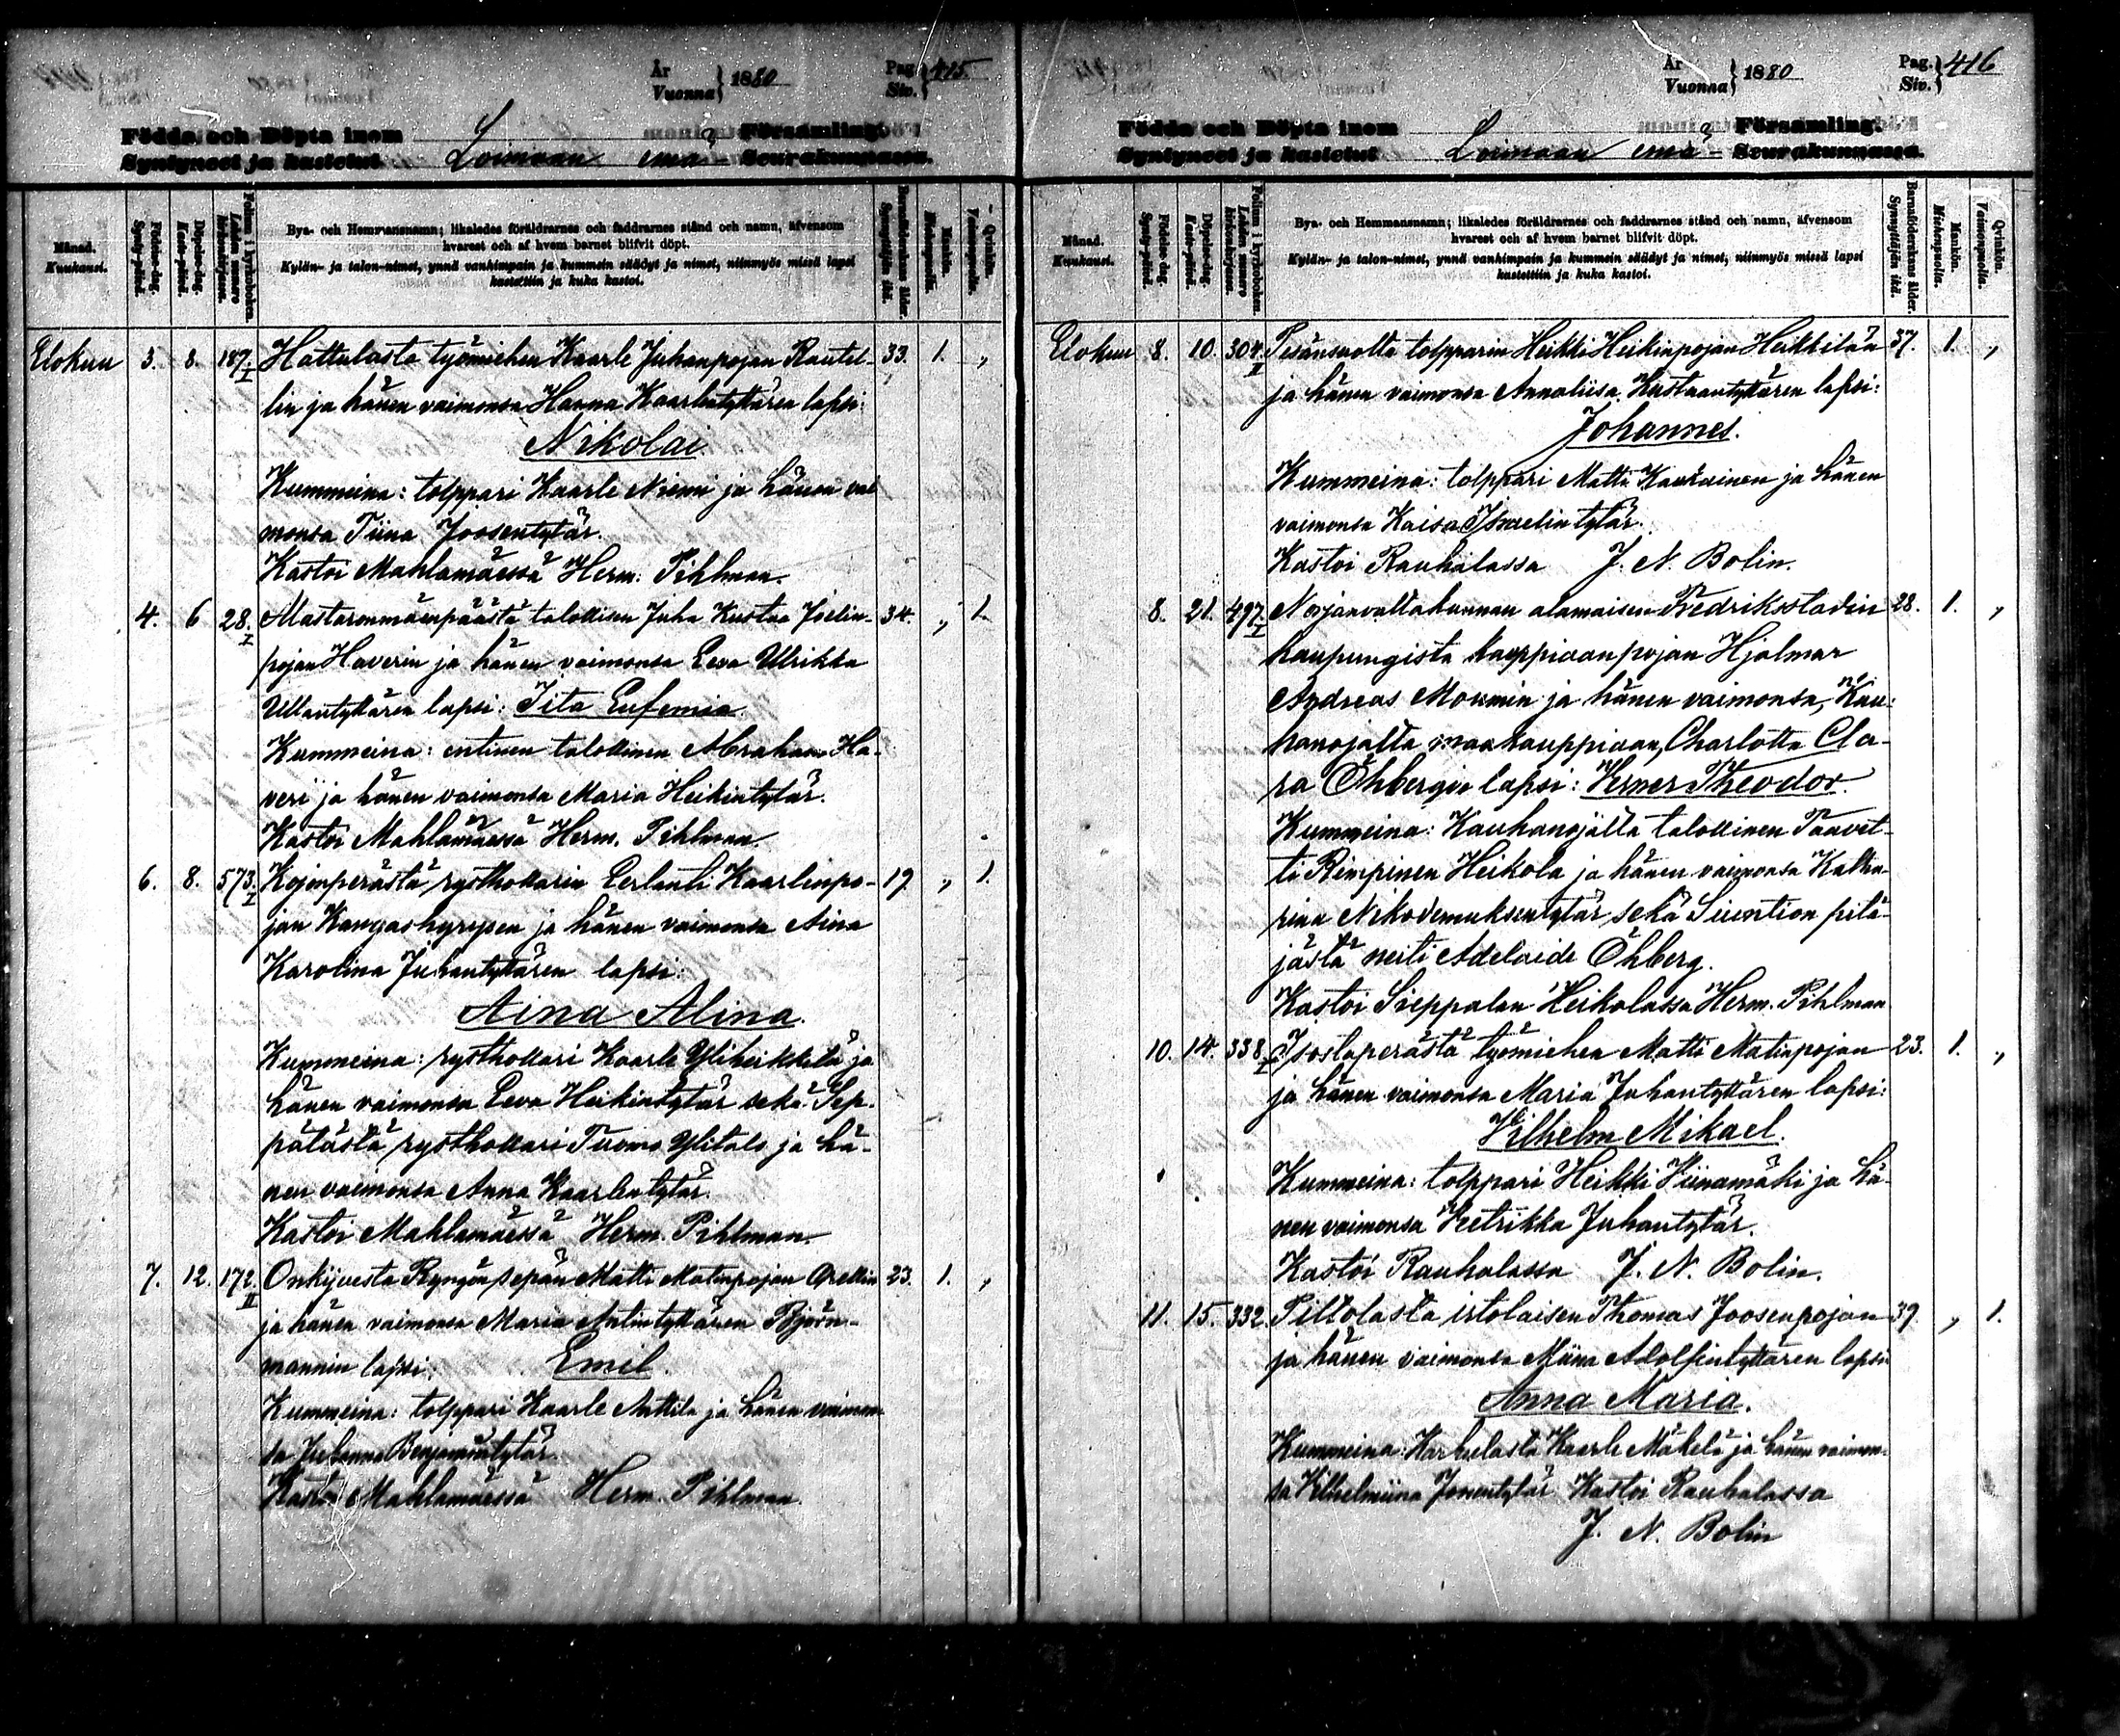 År Vuonna } 1880 Pag. Siv. } 415.
Födda och Döpta inom Församling.
Syntyneet ja kastetut Loimaan emä- Seurakunnassa.
Månad. Kuukausi.
Födelse-dag. Synty-päivä.
Döpelse-dag. Kaste-päivä.
Folium i kyrkoboken. Lehden numero kirkonkirjassa.
Bya- och Hemmansnamn; likaledes föräldrarnes och faddrarnes stånd och namn, äfvensom
hvarest och af hvem barnet blifvit döpt.
Kylän- ja talon-nimet, ynnä vanhimpain ja kummein säädyt ja nimet, niinmyös missä lapsi
kastettiin ja kuka kastoi.
Barnaföderskans ålder. Synnyttäjän ikä.
Mankön. Miehenpuolia.
Qvinkön. Vaimonpuolia.
Elokuu 3. 8. 187. I Hattulasta työmiehen Kaarle Juhanpojan Rautel- 33. 1. „
lin ja hänen vaimonsa Hanna Kaarlentyttären lapsi:
Nikolai.
Kummeina: torppari Kaarle Niemi ja hänen vai
monsa Tiina Joosentytär.
Kastoi Mahlamäessä Herm. Pihlman.
4. 6 28. I Mastaronmäenpäästä talollisen Juha Kustaa Joelin- 34. „ 1.
pojan Haverin ja hänen vaimonsa Eeva Ulrikka
Ullantyttären lapsi: Iita Eufemia.
Kummeina: entinen talollinen Abraham Ha-
veri ja hänen vaimonsa Maria Heikintytär.
Kastoi Mahlamäessä Herm. Pihlman.
6. 8. 573. I Kojonperästä rysthollarin Eerlanti Kaarlenpo- 19. „ 1.
jan Kangashyrysen ja hänen vaimonsa Aina
Karolina Juhantyttären lapsi:
Aina Alina.
Kummeina: rysthollari Kaarle Yliheikkilä ja
hänen vaimonsa Eeva Heikintytär sekä Sep-
pälästä rysthollari Tuomo Ylitalo ja hä-
nen vaimonsa Anna Kaarlentytär.
Kastoi Mahlamäessä Herm. Pihlman.
7. 12. 172. II Onkijoesta Ryngön sepän Matti Matinpojan Grellin 23. 1. „
ja hänen vaimonsa Maria Antintyttären Björn-
mannin lapsi: Emil.
Kummeina: torppari Kaarle Anttila ja hänen vaimon
sa Juhanna Benjamintytär.
Kastoi Mahlamäessä Herm. Pihlman.
År Vuonna } 1880 Pag. Siv. } 416
Födda och Döpta inom Församling.
Syntyneet ja kastetut Loimaan emä- Seurakunnassa.
Månad. Kuukausi.
Födelse-dag. Synty-päivä.
Döpelse-dag. Kaste-päivä.
Folium i kyrkoboken. Lehden numero kirkonkirjassa.
Bya- och Hemmansnamn; likaledes föräldrarnes och faddrarnes stånd och namn, äfvensom
hvarest och af hvem barnet blifvit döpt.
Kylän- ja talon-nimet, ynnä vanhimpain ja kummein säädyt ja nimet, niinmyös missä lapsi
kastettiin ja kuka kastoi.
Barnaföderskans ålder. Synnyttäjän ikä.
Mankön. Miehenpuolia.
Qvinkön. Vaimonpuolia.
Elokuu 8. 10. 304. II Pesänsuolta torpparin Heikki Heikinpojan Heikkilän 37. 1. „
ja hänen vaimonsa Annaliisa Kustaantyttären lapsi:
Johannes.
Kummeina: torppari Matti Kaurainen ja hänen
vaimonsa Kaisa Israelin tytär.
Kastoi Rauhalassa J. N. Bolin.
8. 21. 497. I Norjanvaltakunnan alamaisen Fredriksstadin 28. 1. „
kaupungista kauppiaanpojan Hjalmar
Andreas Mounin ja hänen vaimonsa, Kau-
hanojalta maakauppiaan, Charlotta Cla-
ra Öhbergin lapsi: Verner Theodor.
Kummeina: Kauhanojalta talollinen Taavet-
ti Rimpinen Heikola ja hänen vaimonsa Katha-
rina Nikodemuksentytär sekä Siuntion pitä-
jästä neiti Adelaide Öhberg.
Kastoi Sieppalan Heikolassa Herm. Pihlman
10. 14. 338. I Isostaperästä työmiehen Matti Matinpojan 23. 1. „
ja hänen vaimonsa Maria Juhantyttären lapsi:
Vilhelm Mikael.
Kummeina: torppari Heikki Viinamäki ja hä-
nen vaimonsa Vretrikka Juhantytär.
Kastoi Rauhalassa J. N. Bolin.
11. 15. 332. Piltolasta irtolaisen Thomas Joosenpojan 39. „ 1.
ja hänen vaimonsa Miina Adolfintyttären lapsi
Anna Maria.
Kummeina: Karhulasta Kaarle Mäkelä ja hänen vaimon-
sa Vilhelmiina Joosentytär. Kastoi Rauhalassa
J. N. Bolin